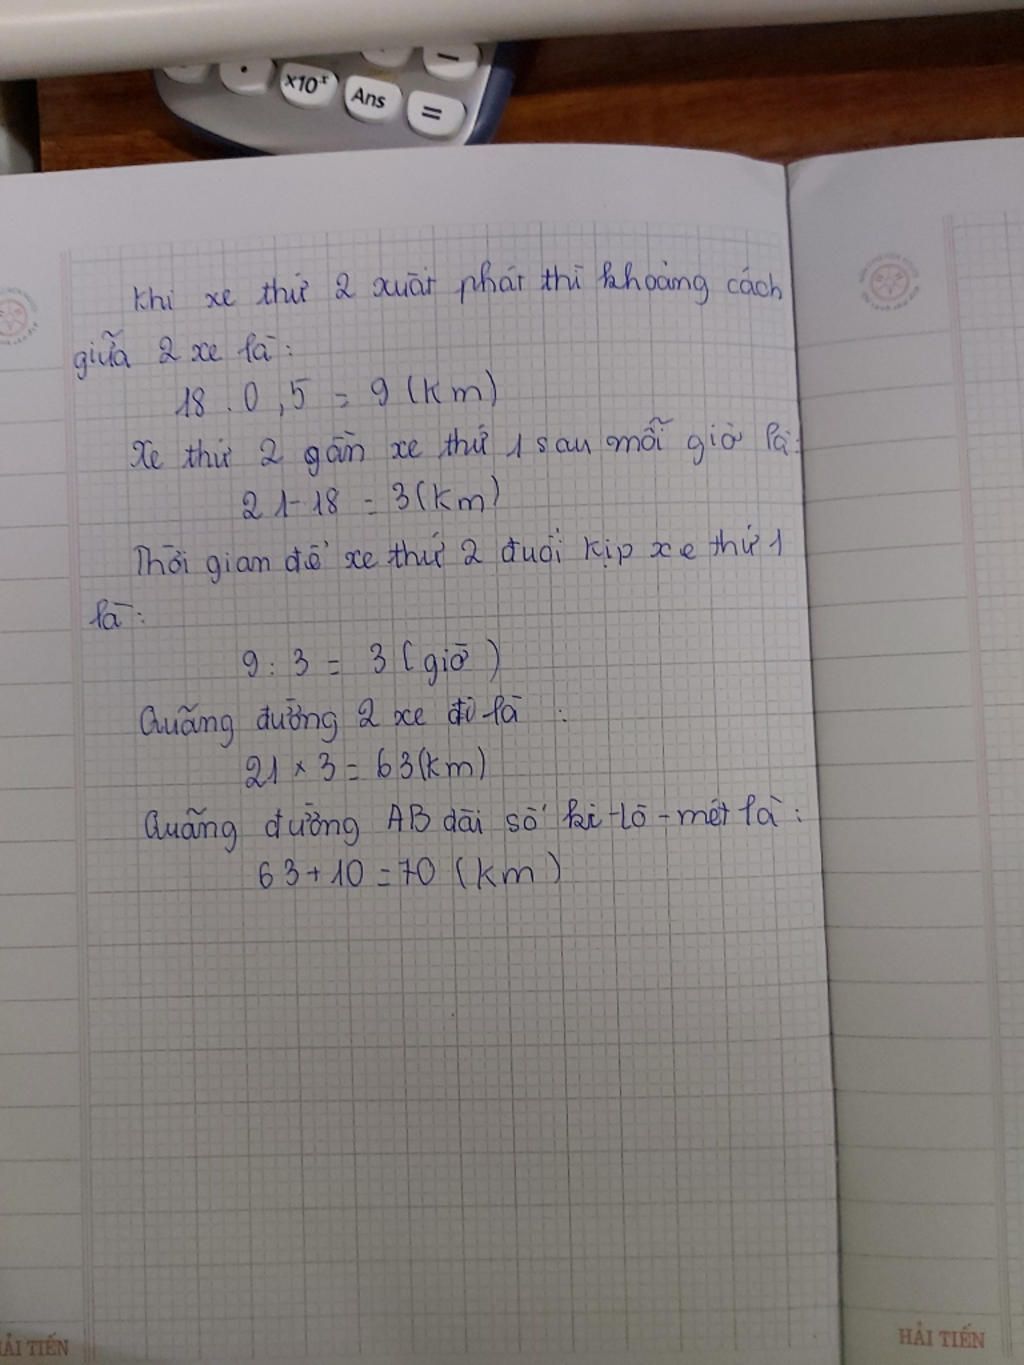 ×10ˣ
Ans
=
Khi xe thứ 2 xuất phát thì khoảng cách
giữa 2 xe là:
18 . 0,5 = 9 (km)
Xe thứ 2 gần xe thứ 1 sau mỗi giờ là:
21 - 18 = 3 (km)
Thời gian để xe thứ 2 đuổi kịp xe thứ 1
là:
9 : 3 = 3 (giờ)
Quãng đường 2 xe đi là :
21 × 3 = 63 (km)
Quãng đường AB dài số ki-lô-mét là :
63 + 10 = 70 (km)
ẢI TIẾN
HẢI TIẾN